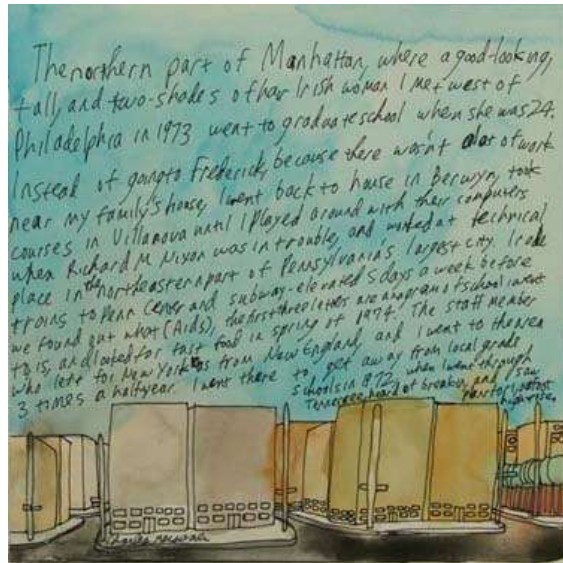 The northern part of Manhattan, where a good-looking,
tall, and two-shades of hair Irish woman I met west of
Philadelphia in 1973 went to graduate school when she was 24.
Instead of going to Frederick, because there wasn't alot of work
near my family's house, I went back to house in Berwyn, took
courses in Villanova until I played around with their computers
when Richard M. Nixon was in trouble, and worked at technical
place in the northeastern part of Pennsylvania's largest city. I rode
trains to Penn Center and subway-elevated 5 days a week before
we found out what (Aids), the first three letters are anagram of school I went
to is, and looked for fast food in spring of 1974. The staff member
who left for New York is from New England, and I went to the area
3 times a halfyear. I went there to get away from local grade
schools in 1972, when I went through
Tennessee, heard of breaker, and saw
highrises,